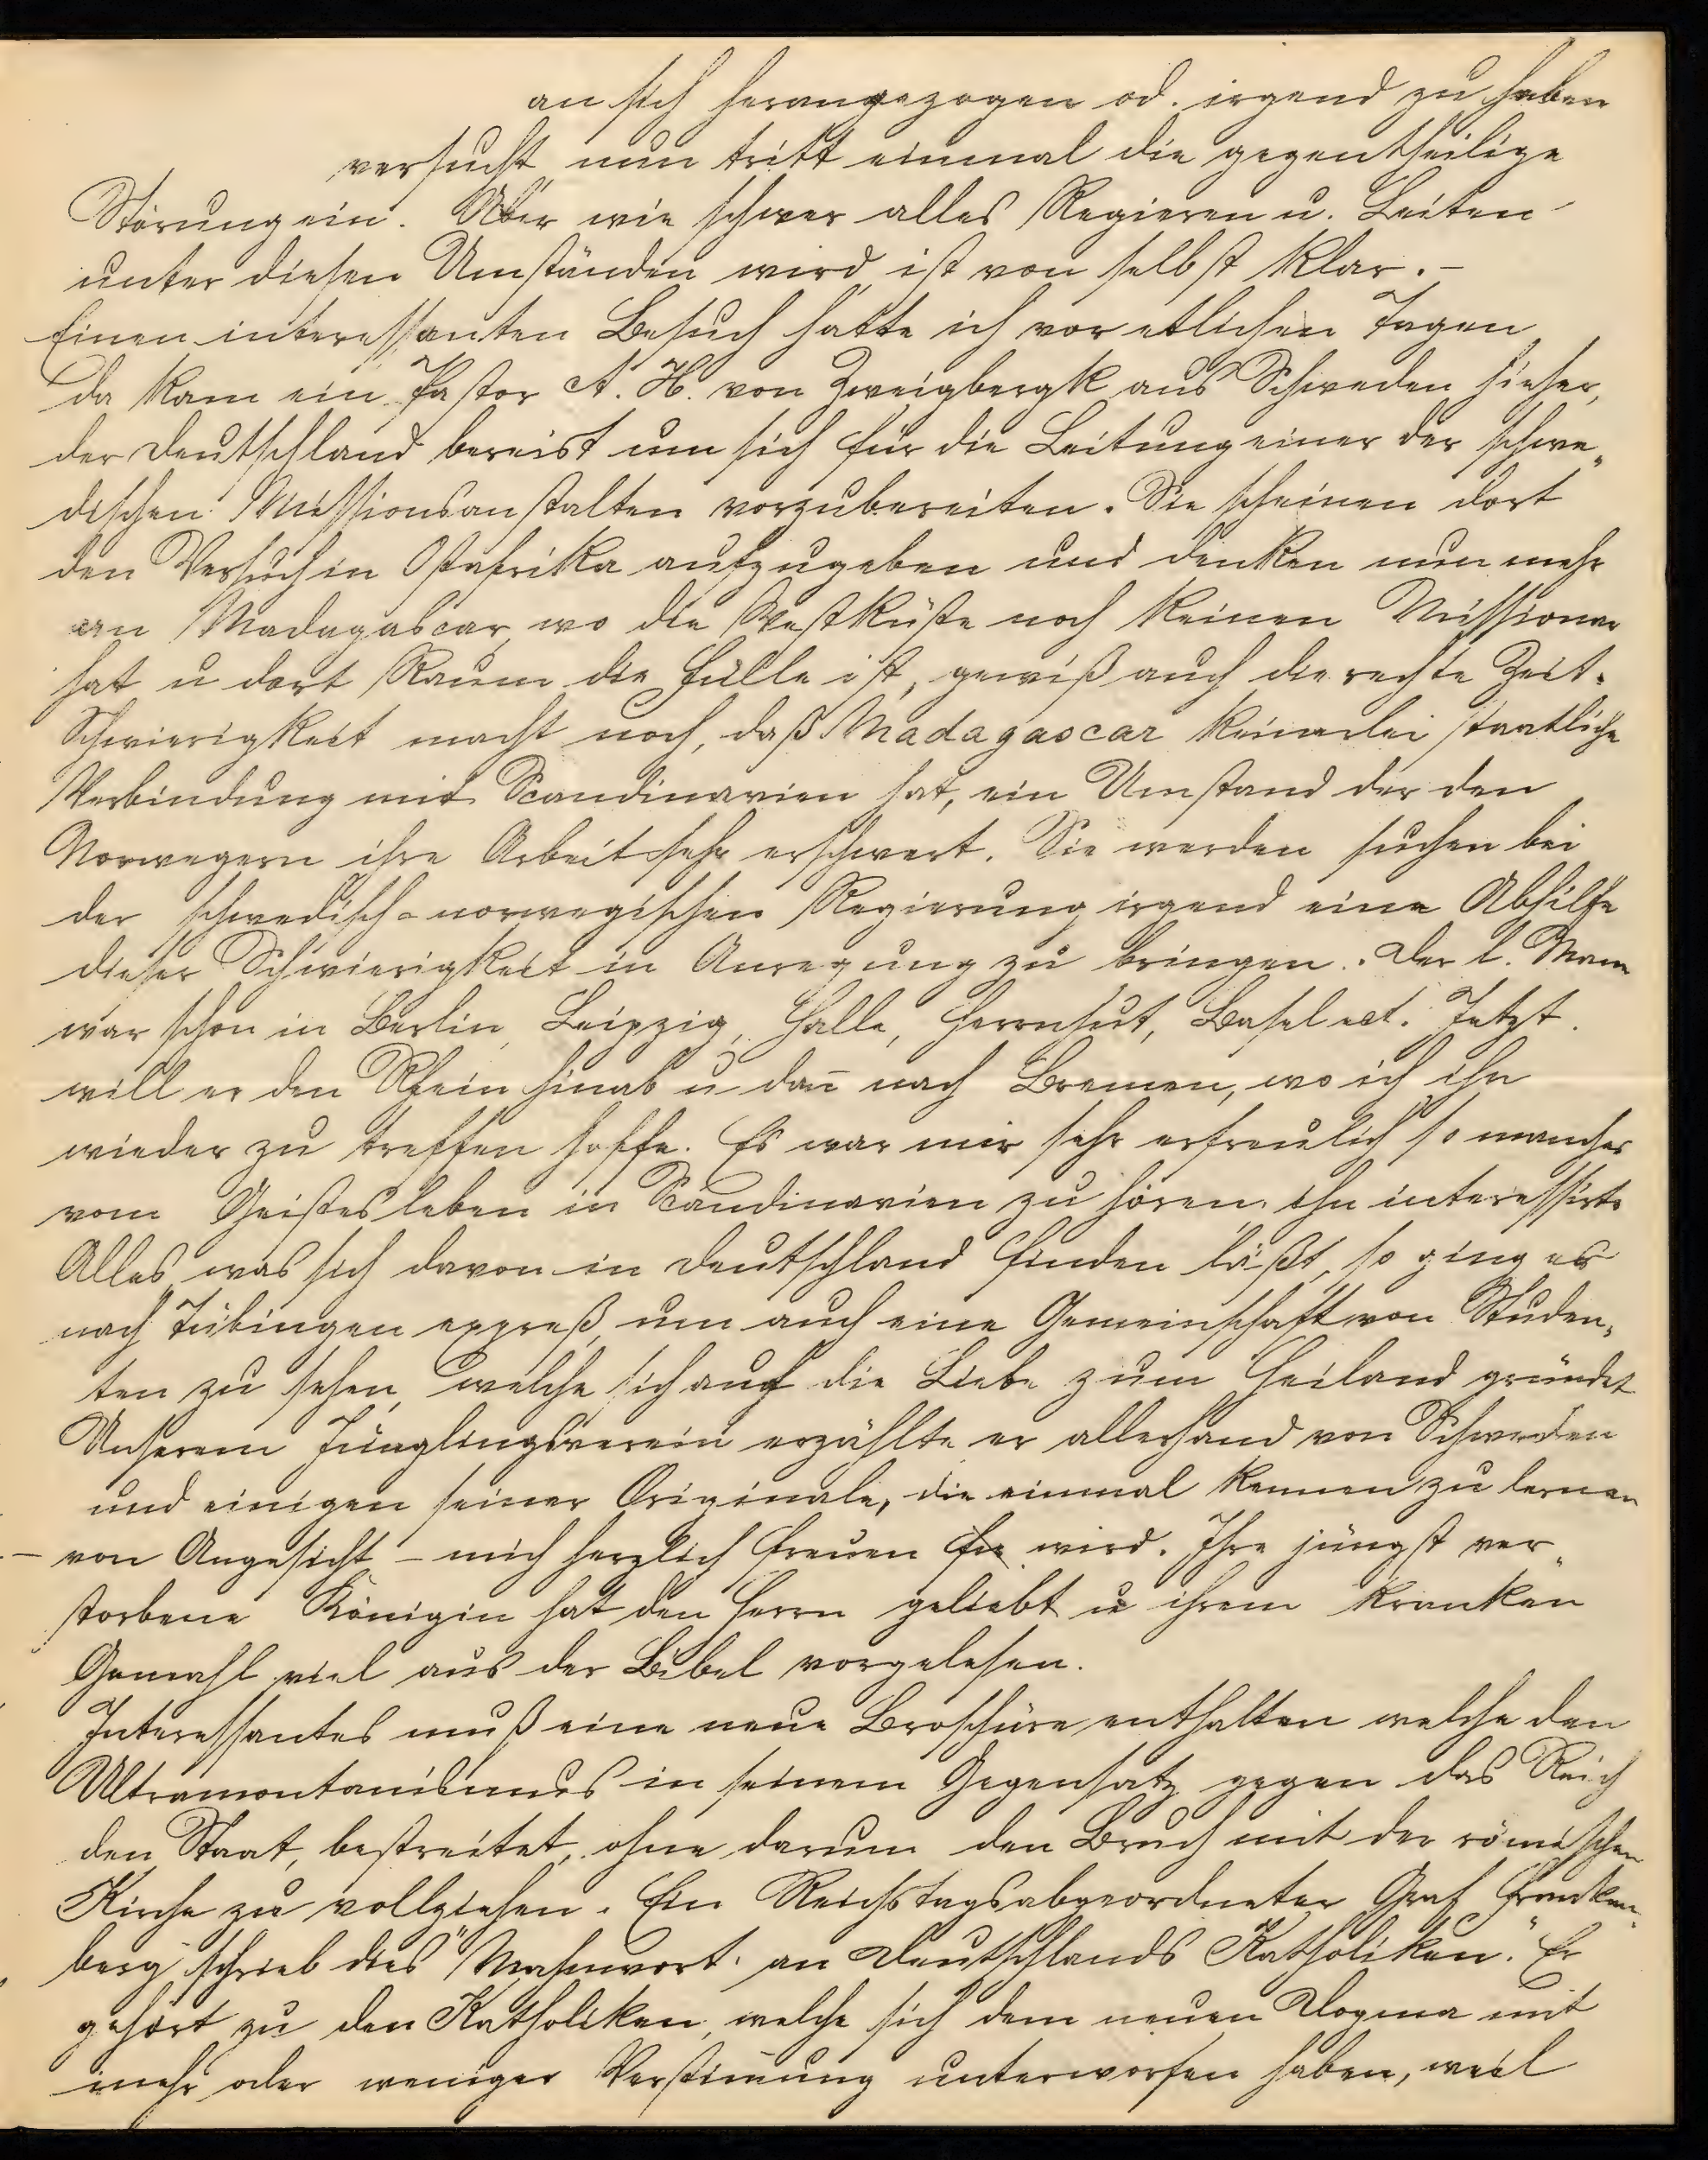 an sich herangezogen od. irgend zu haben
versucht, nun tritt einmal die gegentheilige
Störung ein. Aber wie schwer alles Regieren u. Leiten
unter diesen Umständen wird, ist von selbst klar. –
Einen interessanten Besuch hatte ich vor etlichen Tagen,
da kam ein Pastor A. H. von Zweigbergk aus Schweden hieher,
der Deutschland bereist um sich für die Leitung einer der schwe„
dischen Missionsanstalten vorzubereiten. Sie scheinen dort
den Versuch in Ostafrika aufzugeben und denken nun mehr
an Madagascar, wo die Westküste noch keinen Missionar
hat u dort Raum die Fülle ist, gewiß auch die rechte Zeit.
Schwierigkeit macht noch, daß Madagascar keinerlei staatliche
Verbindung mit Scandinavien hat, ein Umstand der den
Norwegern ihre Arbeit sehr erschwert. Sie werden suchen bei
der schwedisch-norwegischen Regierung irgend eine Abhilfe
dieser Schwierigkeit in Anregung zu bringen. Der l. Mann
war schon in Berlin, Leipzig, Halle, Herrnhut, Basel ect. Jetzt
will er den Rhein hinab u dañ nach Bremen, wo ich ihn
wieder zu treffen hoffe. Es war mir sehr erfreulich so manches
vom Geistesleben in Scandinavien zu hören, ihn interessirte
Alles, was sich davon in Deutschland finden läßt, so ging er
nach Tübingen expreß, um auch eine Gemeinschaft von Studen„
ten zu sehen, welche sich auf die Liebe zum Heiland gründet
Unserem Jünglingsverein erzählte er allerhand von Schweden
und einigen seiner Originale, die einmal kennen zu lernen
– von Angesicht – mich herzlich freuen wird. Ihre jüngst ver„
storbene Königin hat den Herrn geliebt u ihrem kranken
Gemahl viel aus der Bibel vorgelesen.
Interessantes muß eine neue Broschüre enthalten welche den
Ultramontanismus in seinem Gegensatz gegen das Reich
den Staat, bestreitet, ohne darum den Bruch mit der römischen
Kirche zu vollziehen. Ein Reichstagsabgeordneter Graf Franken„
berg schrieb dies "Mahnwort an Deutschlands Katholiken." Er
gehört zu den Katholiken, welche sich dem neuen Dogma mit
mehr oder weniger Verstim̄ung unterworfen haben, weil